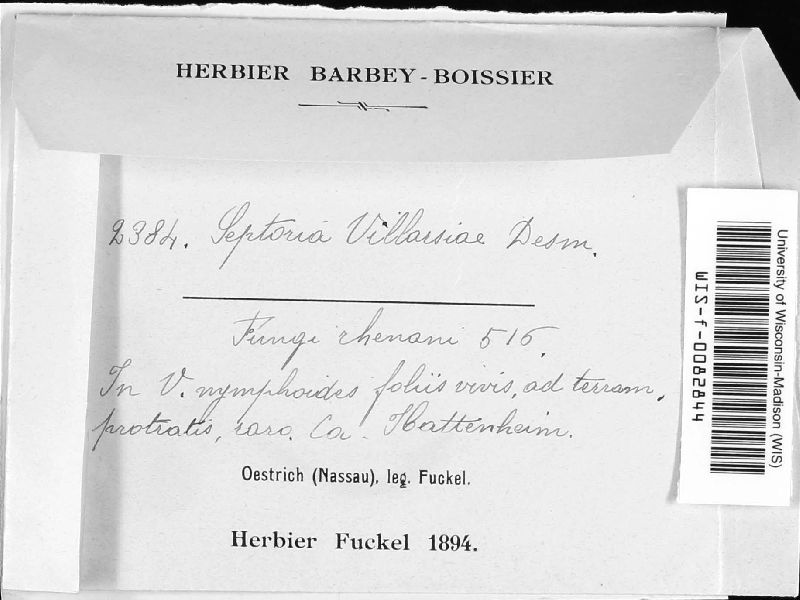 HERBIER BARBEY-BOISSIER
2384. Septoria Villarsiae Desm.
Fungi rhenani 516.
In V. nymphoides foliis vivis, ad terram,
protratis, raro. Ca. Hattenheim.
Oestrich (Nassau), leg. Fuckel.
Herbier Fuckel 1894.
University of Wisconsin-Madison (WIS)
WIS-f-0082844